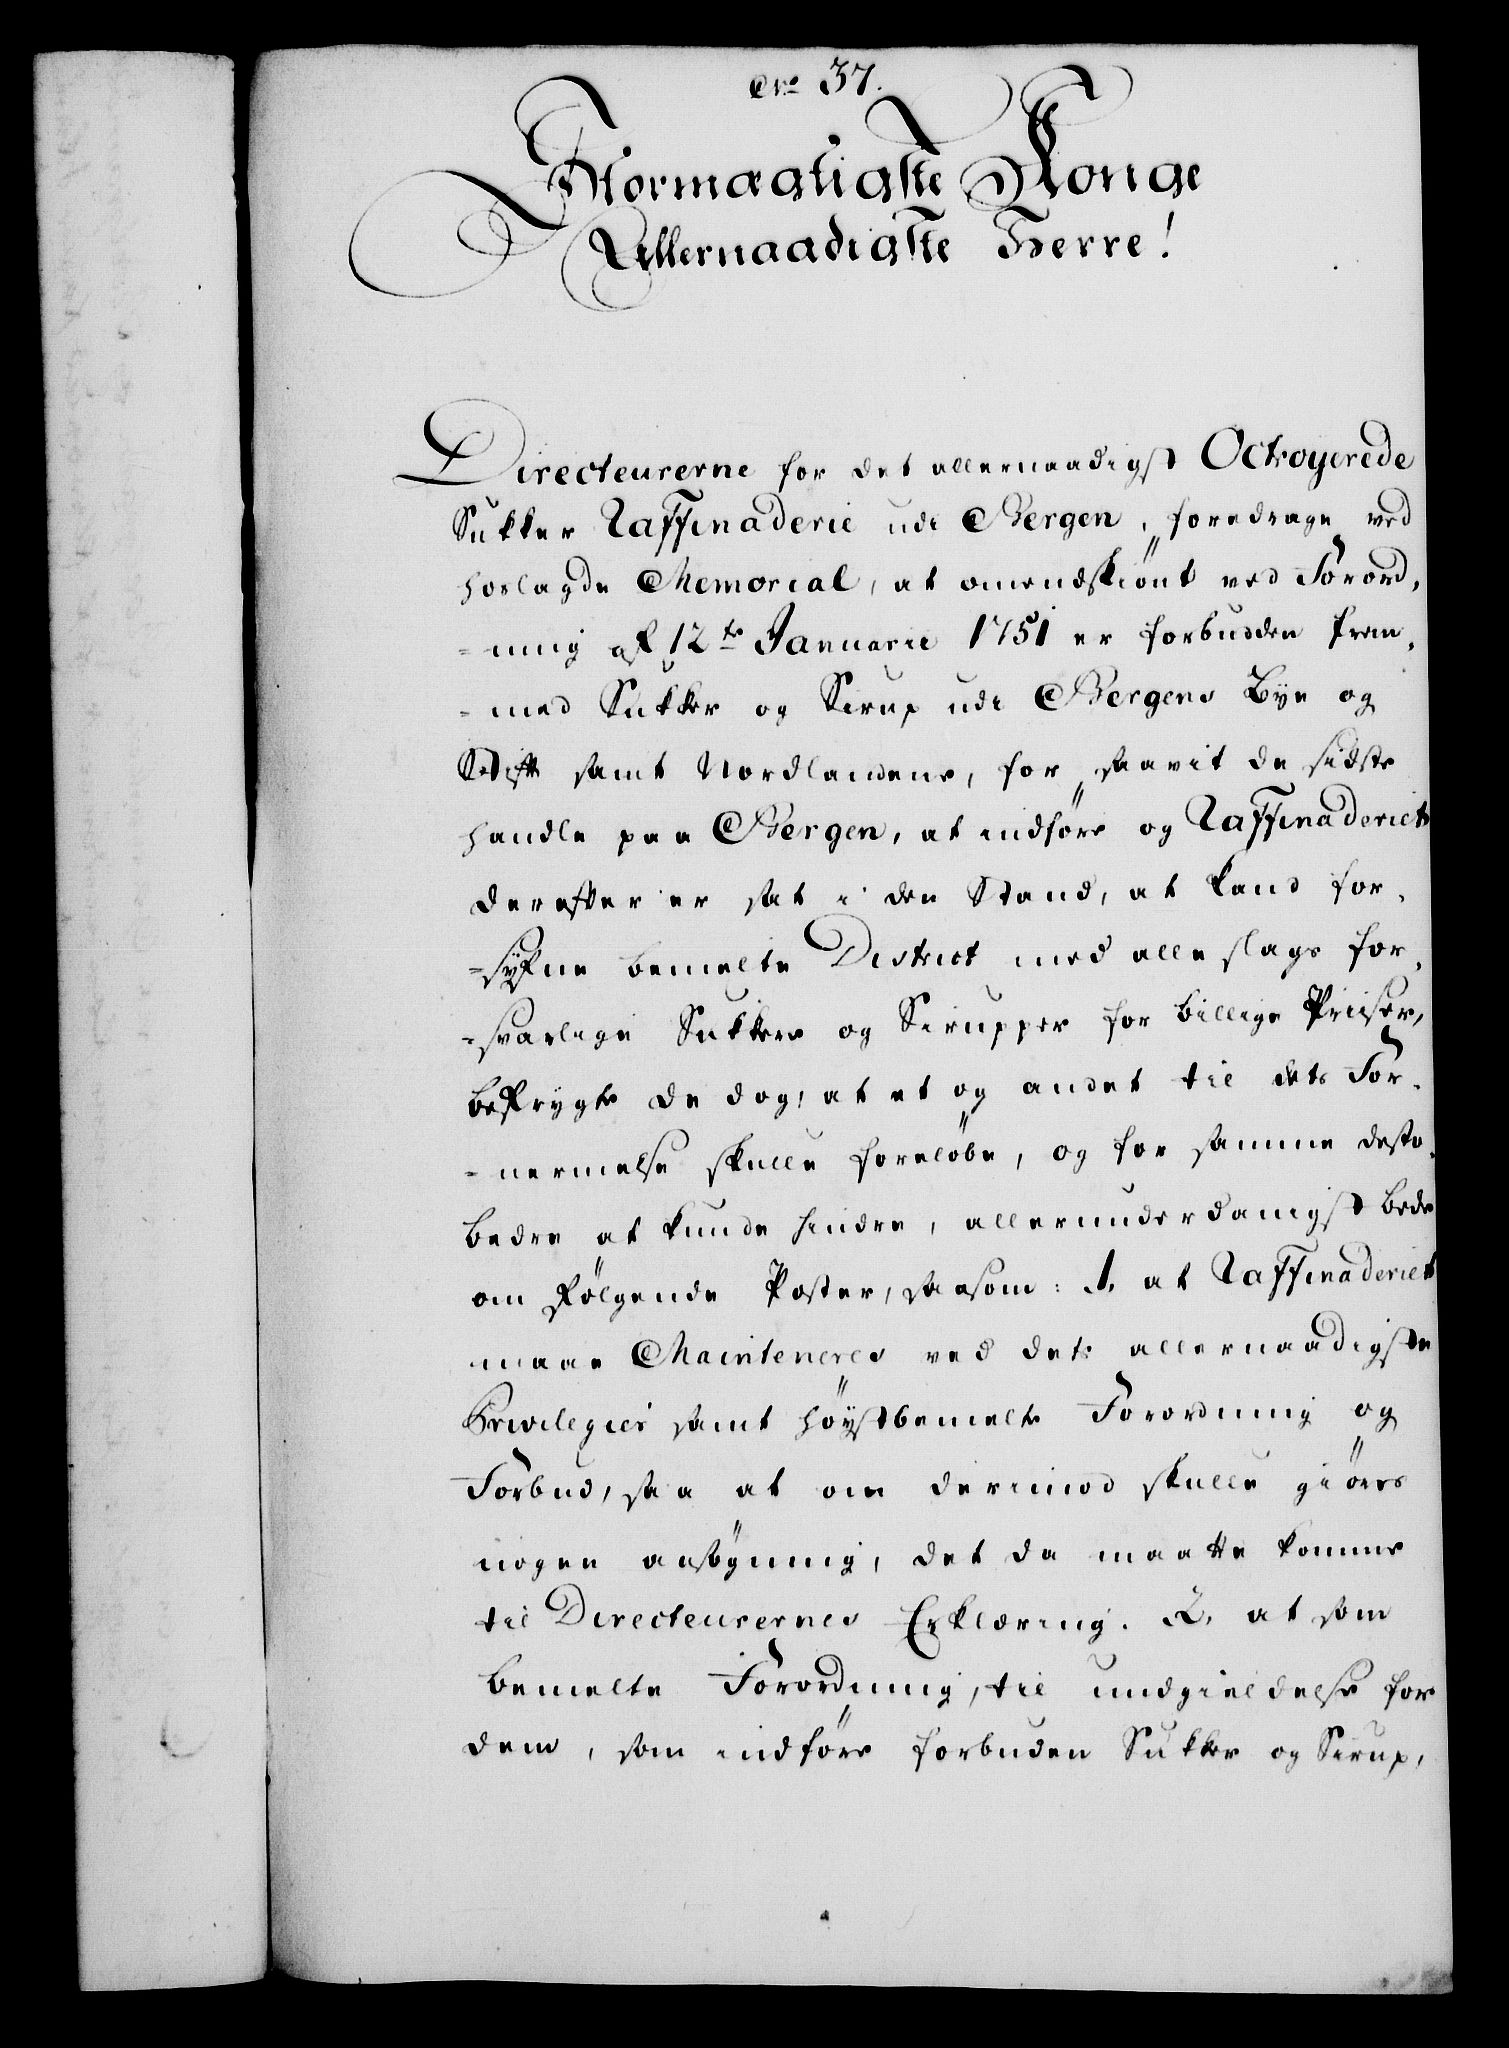 No 37.
Stormægtigste Konge
Allernaadigste Herre!
Directeurerne for det allernaadigst Octroyerede
Sukker Raffinaderie udi Bergen, foredrage ved
hoslagde Memorial, at omendskiönt ved Forord,
-ning af 12te Januarii 1751 er forbudden frem,
-med Sukker og Sirup udi Bergens Bye og
Stift samt Nordlandene, for saavit de sidste
handle paa Bergen, at indföre og Raffinaderiet
derefter er sat i den Stand, at kand for,
-syfne bemelte District med alle slags for,
-svarlige Sukkere og Sirupper for billige Priiser,
befrygte de dog, at et og andet til dets For,
-nermelse skulle forelöbe, og for samme desto,
bedre at kunde hindre, allerunderdanigst bede
om fölgende Poster, saasom: 1, at Raffinaderiet
maae Mainteneres ved dets allernaadigste
Privilegier samt höystbemelte Forordning og
Forbud, saa at om derimod skulle giöres
nogen ansögning, det da maatte komme
til Directeurernes Erklæring. 2, at som
bemelte Forordning, til undgieldelse for
dem, som indföre forbuden Sukker og Sirup,